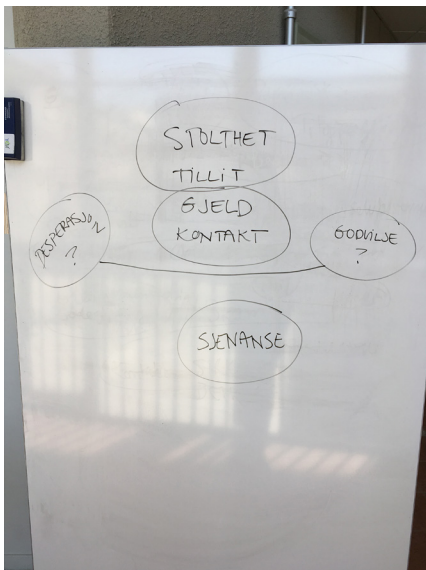 STOLTHET
TILLIT
GJELD
KONTAKT
DESPERASJON
?
GODVILJE
?
SJENANSE